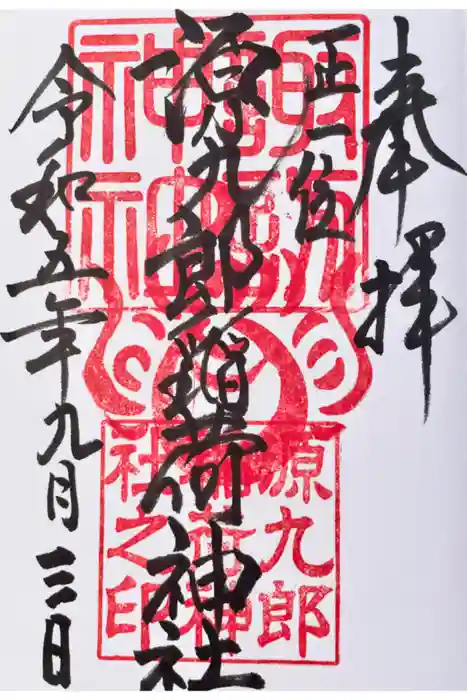 奉拝
正一位
源九郎稲荷神社
令和五年九月三日
源九郎
稲荷神
社之印